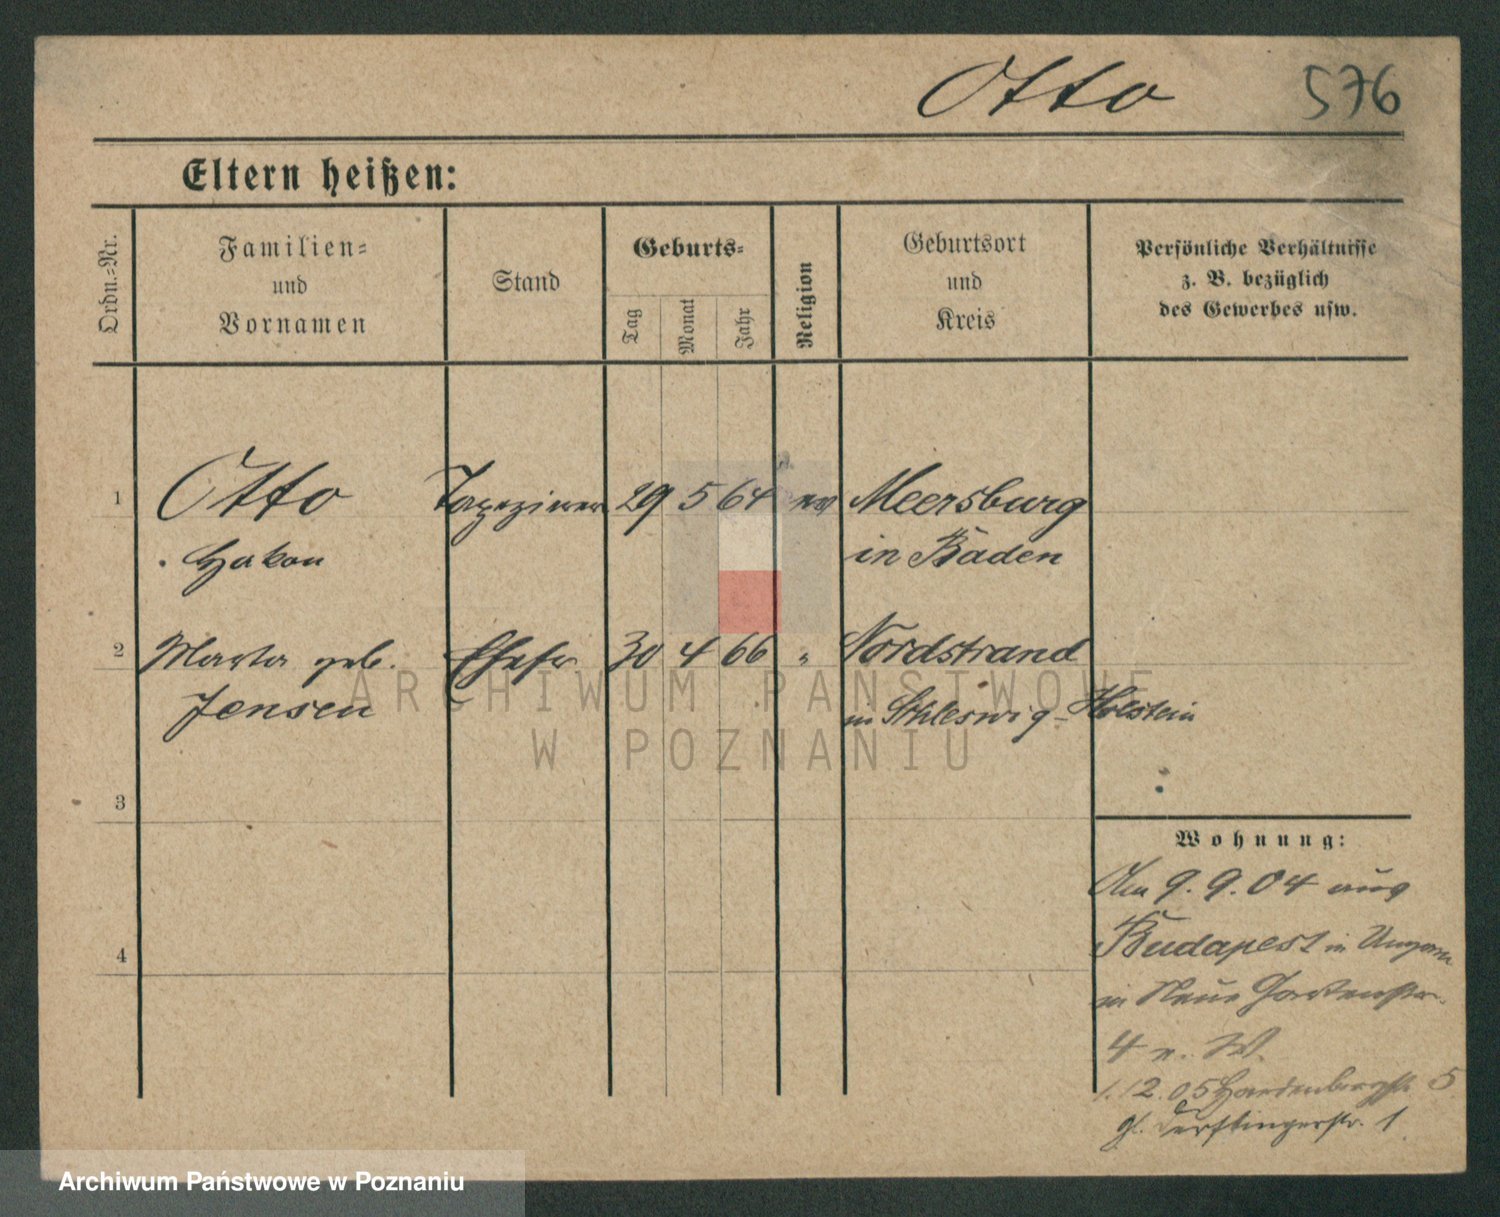 Otto 576
Eltern heißen:
Ordn.-Nr.
Familien-
und
Vornamen
Stand
Geburts-
Tag
Monat
Jahr
Religion
Geburtsort
und
Kreis
Persönliche Verhältnisse
z. B. bezüglich
des Gewerbes usw.
1 Otto Tapezierer 29 5 64 ev Meersburg
Hakon in Baden
2 Marta geb. Ehefr 30 4 66 " Nordstrand
Jensen in Schleswig-Holstein
3
4
Wohnung:
Am 9.9.04 aus
Budapest in Ungarn
in Neue Gartenstr.
4 W.
1.12.05 Hardenbergstr. 5
Derfflingerstr. 1
ARCHIWUM PAŃSTWOWE
W POZNANIU
Archiwum Państwowe w Poznaniu